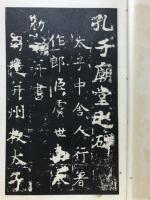 孔子廟堂之碑
太子中舍人行著
作郎臣虞世南
勑并書
司徒并州牧太子